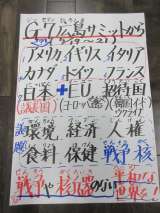 G7広島サミットから
5/19~21
アメリカ イギリス イタリア
カナダ ドイツ フランス
日本 + EU 招待国
(議長国) (ヨーロッパ連合) (韓国 インド
ウクライナ
議題
環境 経済 人権
食料 保健 戦争 核
戦争や核兵器のない
平和な
世界を!